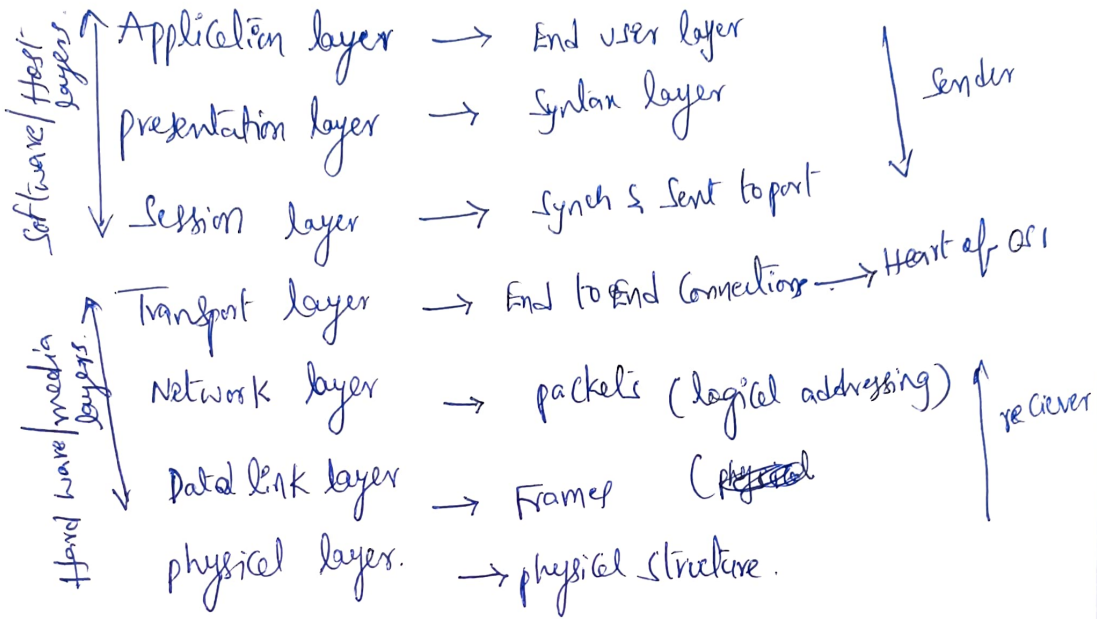 Software/Host layers.
Application layer → End user layer
presentation layer → Syntax layer
Session layer → Synch & Sent to port
Sender
Transport layer → End to End Connections → Heart of OSI
Hard ware/media layers.
Network layer → packets (logical addressing)
Data link layer → Frames (
physical layer. → physical structure.
reciever